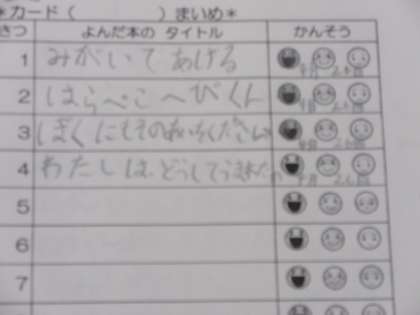 *カード( )まいめ*
さつ よんだ本の タイトル かんそう
1 みがいてあげる
2 はらぺこへびくん
3 ぼくにもそのあいをください
4 わたしは、どうしてうまれたの
5
6
7